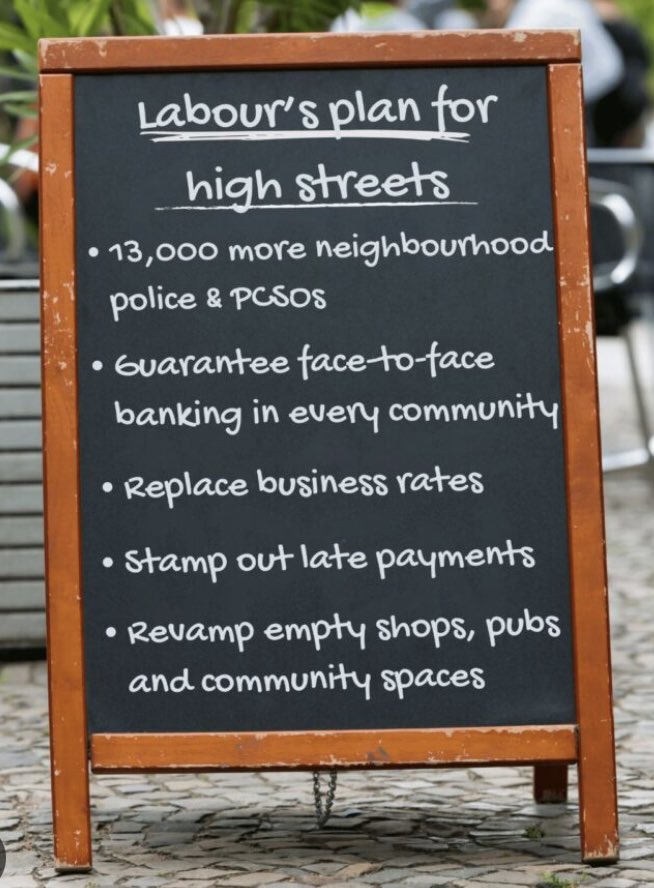 Labour's plan for
high streets
• 13,000 more neighbourhood
police & PCSOs
• Guarantee face-to-face
banking in every community
• Replace business rates
• Stamp out late payments
• Revamp empty shops, pubs
and community spaces